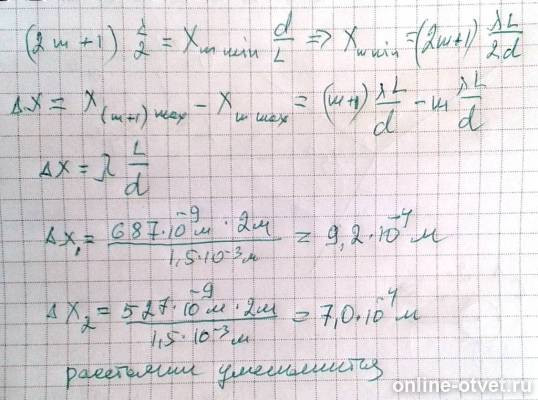 (2m+1) λ/2 = x_m min d/L ⇒ x_m min = (2m+1) λL/2d
Δx = x_(m+1) max − x_m max = (m+1) λL/d − m λL/d
Δx = λ L/d
Δx₁ = 687·10⁻⁹м · 2м / 1,5·10⁻³м = 9,2·10⁻⁴м
Δx₂ = 527·10⁻⁹м · 2м / 1,5·10⁻³м = 7,0·10⁻⁴м
расстоянии уменьшится
online-otvet.ru